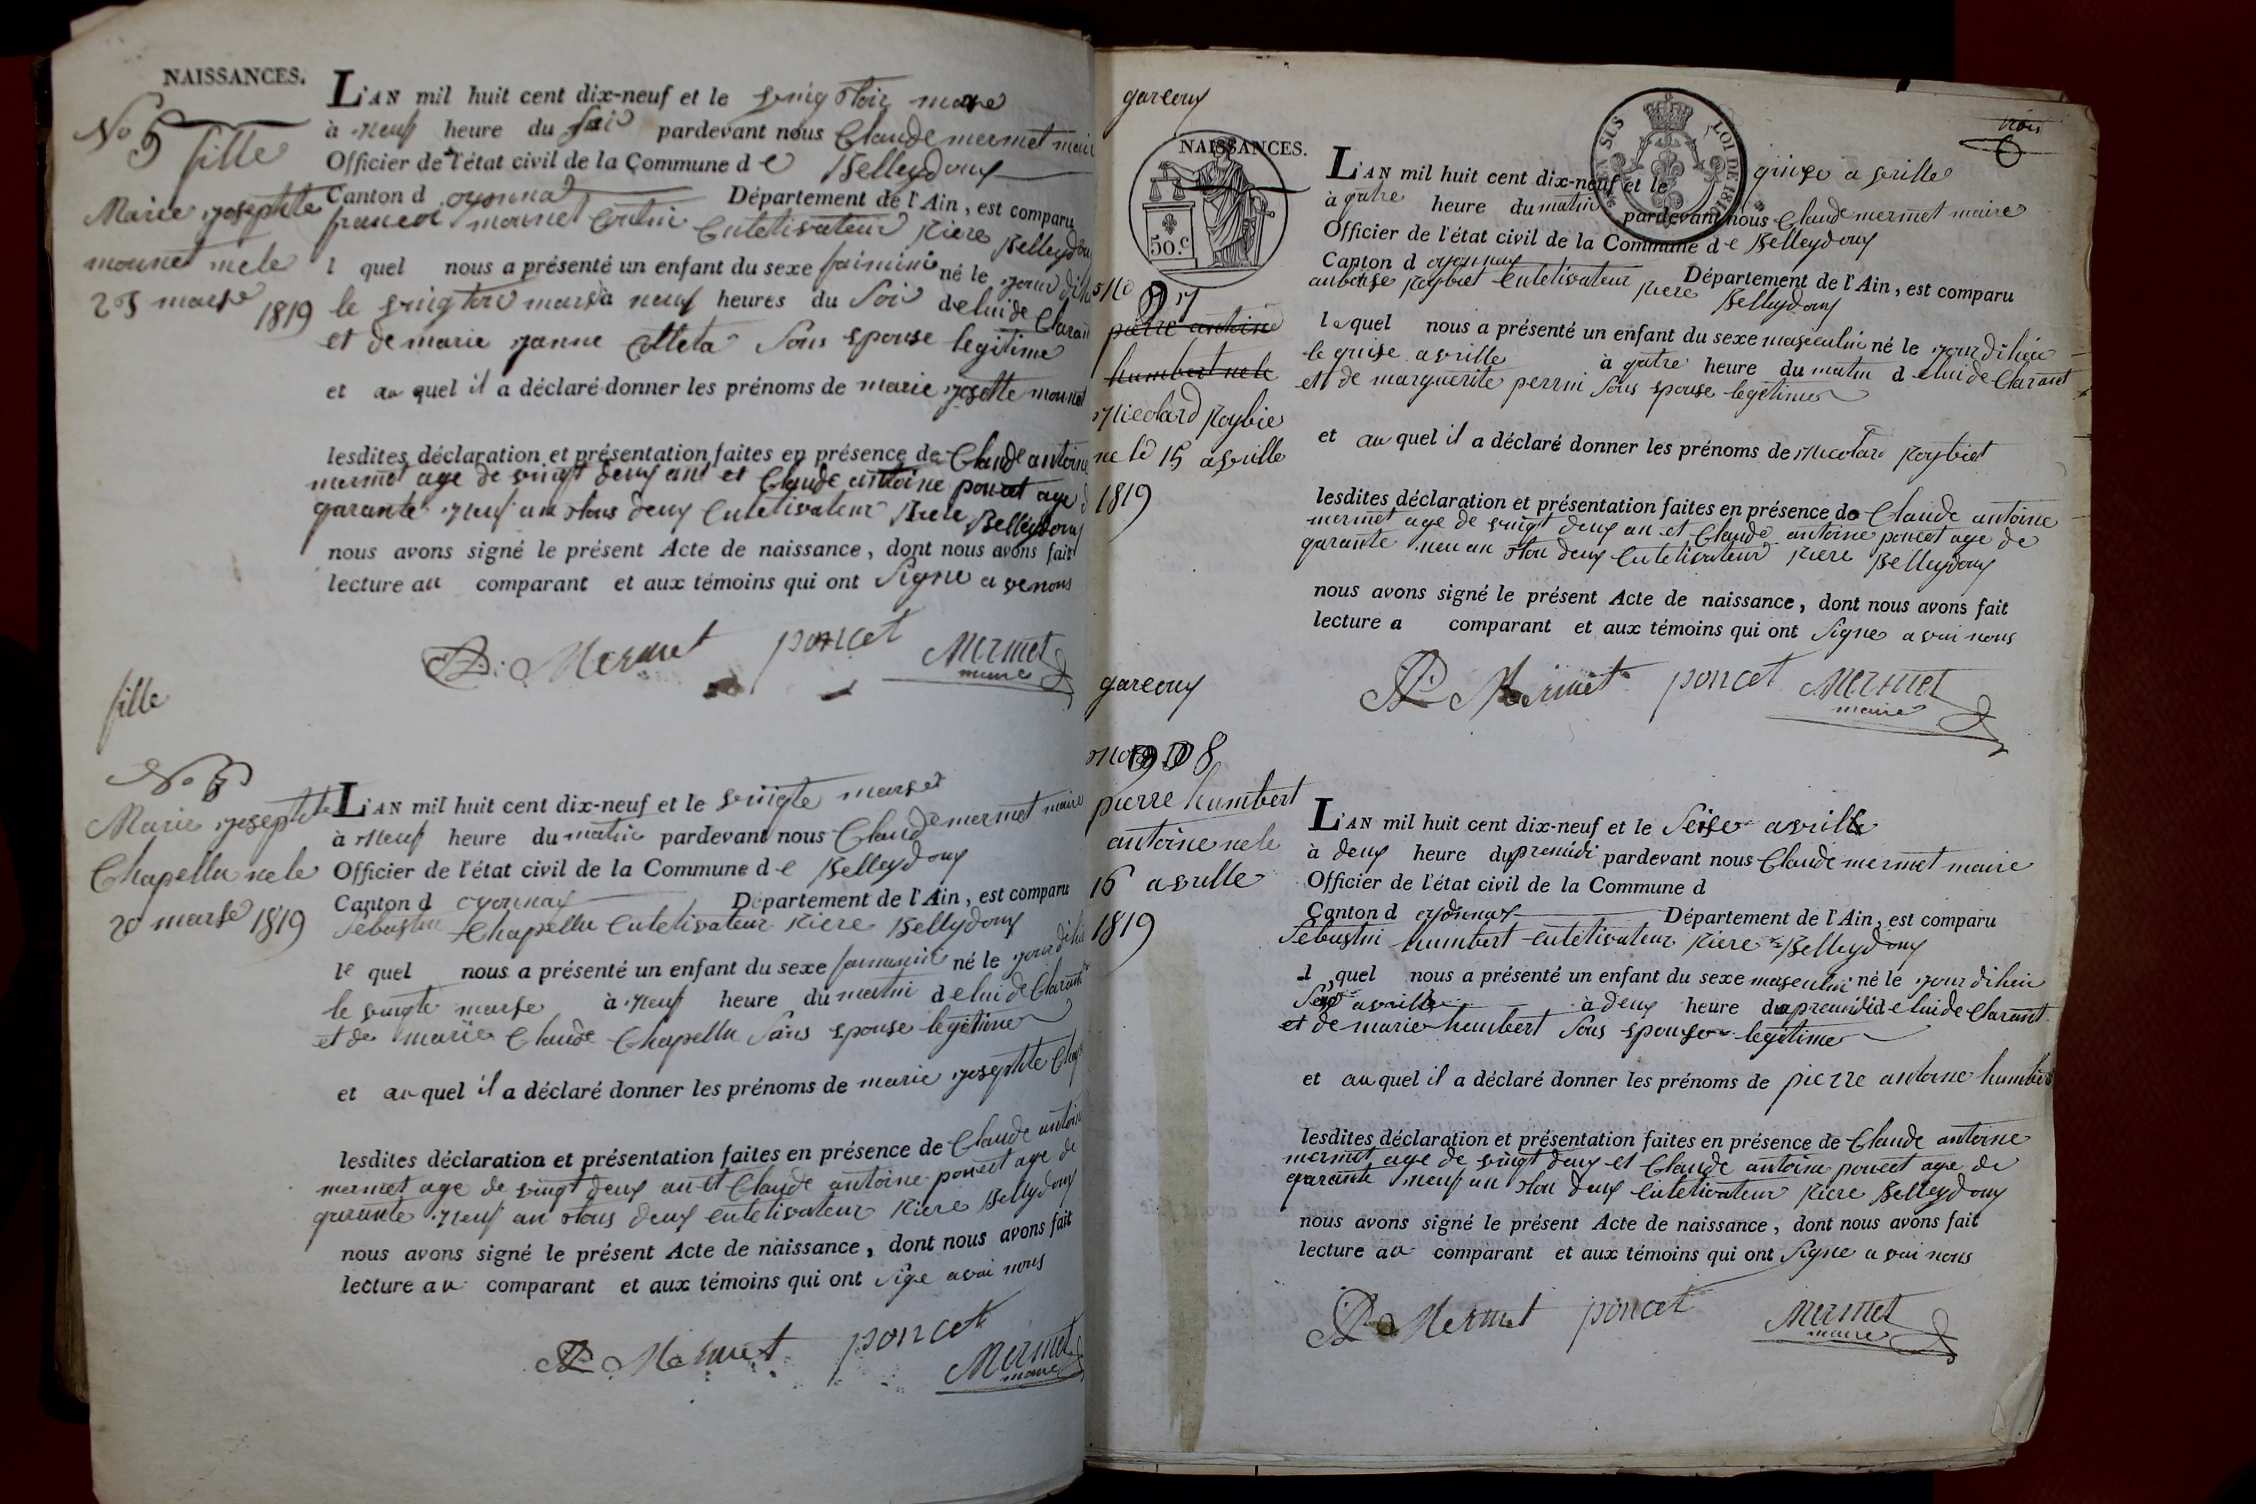 NAISSANCES.
No 5 fille
Marie josephte
mounet ne le
23 marse 1819
L'AN mil huit cent dix-neuf et le vingt troi marse
à neuf heure du soir pardevant nous Claude mermet maire
Officier de l'état civil de la Commune d e Belleydoux
Canton d oyonnax Département de l'Ain, est comparu
francoi mounet cultivateur riere Belleydoux
l quel nous a présenté un enfant du sexe né le
le vingt troi marse à neuf heures du soir de lui de Clarant
et de marie janne sous epouse legitime
et au quel il a déclaré donner les prénoms de marie josette mounet
lesdites déclaration et présentation faites en présence de Claude antoine
mermet age de vingt deux ans et Claude antoine poncet age d
garante neuf an tous deux cultetivateur riere Belleydoux
nous avons signé le présent Acte de naissance, dont nous avons fait
lecture au comparant et aux témoins qui ont signe a ve nous
Mermet poncet Mermet
maire
fille
No 6
Marie josephte
Chapellu ne le
20 marse 1819
L'AN mil huit cent dix-neuf et le vingte marse
à neuf heure du matin pardevant nous Claude mermet maire
Officier de l'état civil de la Commune d e Belleydoux
Canton d oyonnax Département de l'Ain, est comparu
Sebastin Chapellu cutetivateur riere Belleydoux
le quel nous a présenté un enfant du sexe né le jour dihui
le vingte marse à neuf heure du matin d e lui de Clarant
et de marie Claude Chapellu sous epouse legitime
et au quel il a déclaré donner les prénoms de marie josephte Chap
lesdites déclaration et présentation faites en présence de Claude antoine
mermet age de vingt deux an et Claude antoine poncet age de
garante neuf an tous deux cutetivateur riere Belleydoux
nous avons signé le présent Acte de naissance, dont nous avons fait
lecture au comparant et aux témoins qui ont sige avai nous
Mermet poncet Mermet
maire
garcoux
trois
6
NAISSANCES.
50.c
LOI DE 1816
No 7
pierre antoine
humbert ne le
Nicolard Roybie
ne le 15 avrille
1819
L'AN mil huit cent dix-neuf et le quinse avrille
à quatre heure du matin pardevant nous Claude mermet maire
Officier de l'état civil de la Commune d e Belleydoux
Canton d oyonnax Département de l'Ain, est comparu
anboise Roybiet cutetivateur riere Belleydoux
le quel nous a présenté un enfant du sexe masculin né le jour dihui
le quise avrille à quatre heure du matin d e lui de Clarant
et de marguerite perrin sous epouse legitime
et au quel il a déclaré donner les prénoms de Nicolard Roybiet
lesdites déclaration et présentation faites en présence de Claude antoine
mermet age de vingt deux an et Claude antoine poncet age de
garante neu an tou deux cutetivateur riere Belleydoux
nous avons signé le présent Acte de naissance, dont nous avons fait
lecture a comparant et aux témoins qui ont signe avai nous
Mermet poncet Mermet
maire
garcoux
No 8
pierre humbert
antoine ne le
16 avrille
1819
L'AN mil huit cent dix-neuf et le seise avrille
à deux heure du premidi pardevant nous Claude mermet maire
Officier de l'état civil de la Commune d
Canton d oyonnax Département de l'Ain, est comparu
Sebastin humbert cutetivateur riere Belleydoux
l quel nous a présenté un enfant du sexe masculin né le jour dihui
avrille à deux heure du apremidi d e lui de Clarant
et de marie humbert sous epouse legitime
et au quel il a déclaré donner les prénoms de pierre antoine humbert
lesdites déclaration et présentation faites en présence de Claude antoine
mermet age de vingt deux et Claude antoine poncet age de
garante neuf an tou deux cutetivateur riere Belleydoux
nous avons signé le présent Acte de naissance, dont nous avons fait
lecture au comparant et aux témoins qui ont signe avai nous
Mermet poncet Mermet
maire